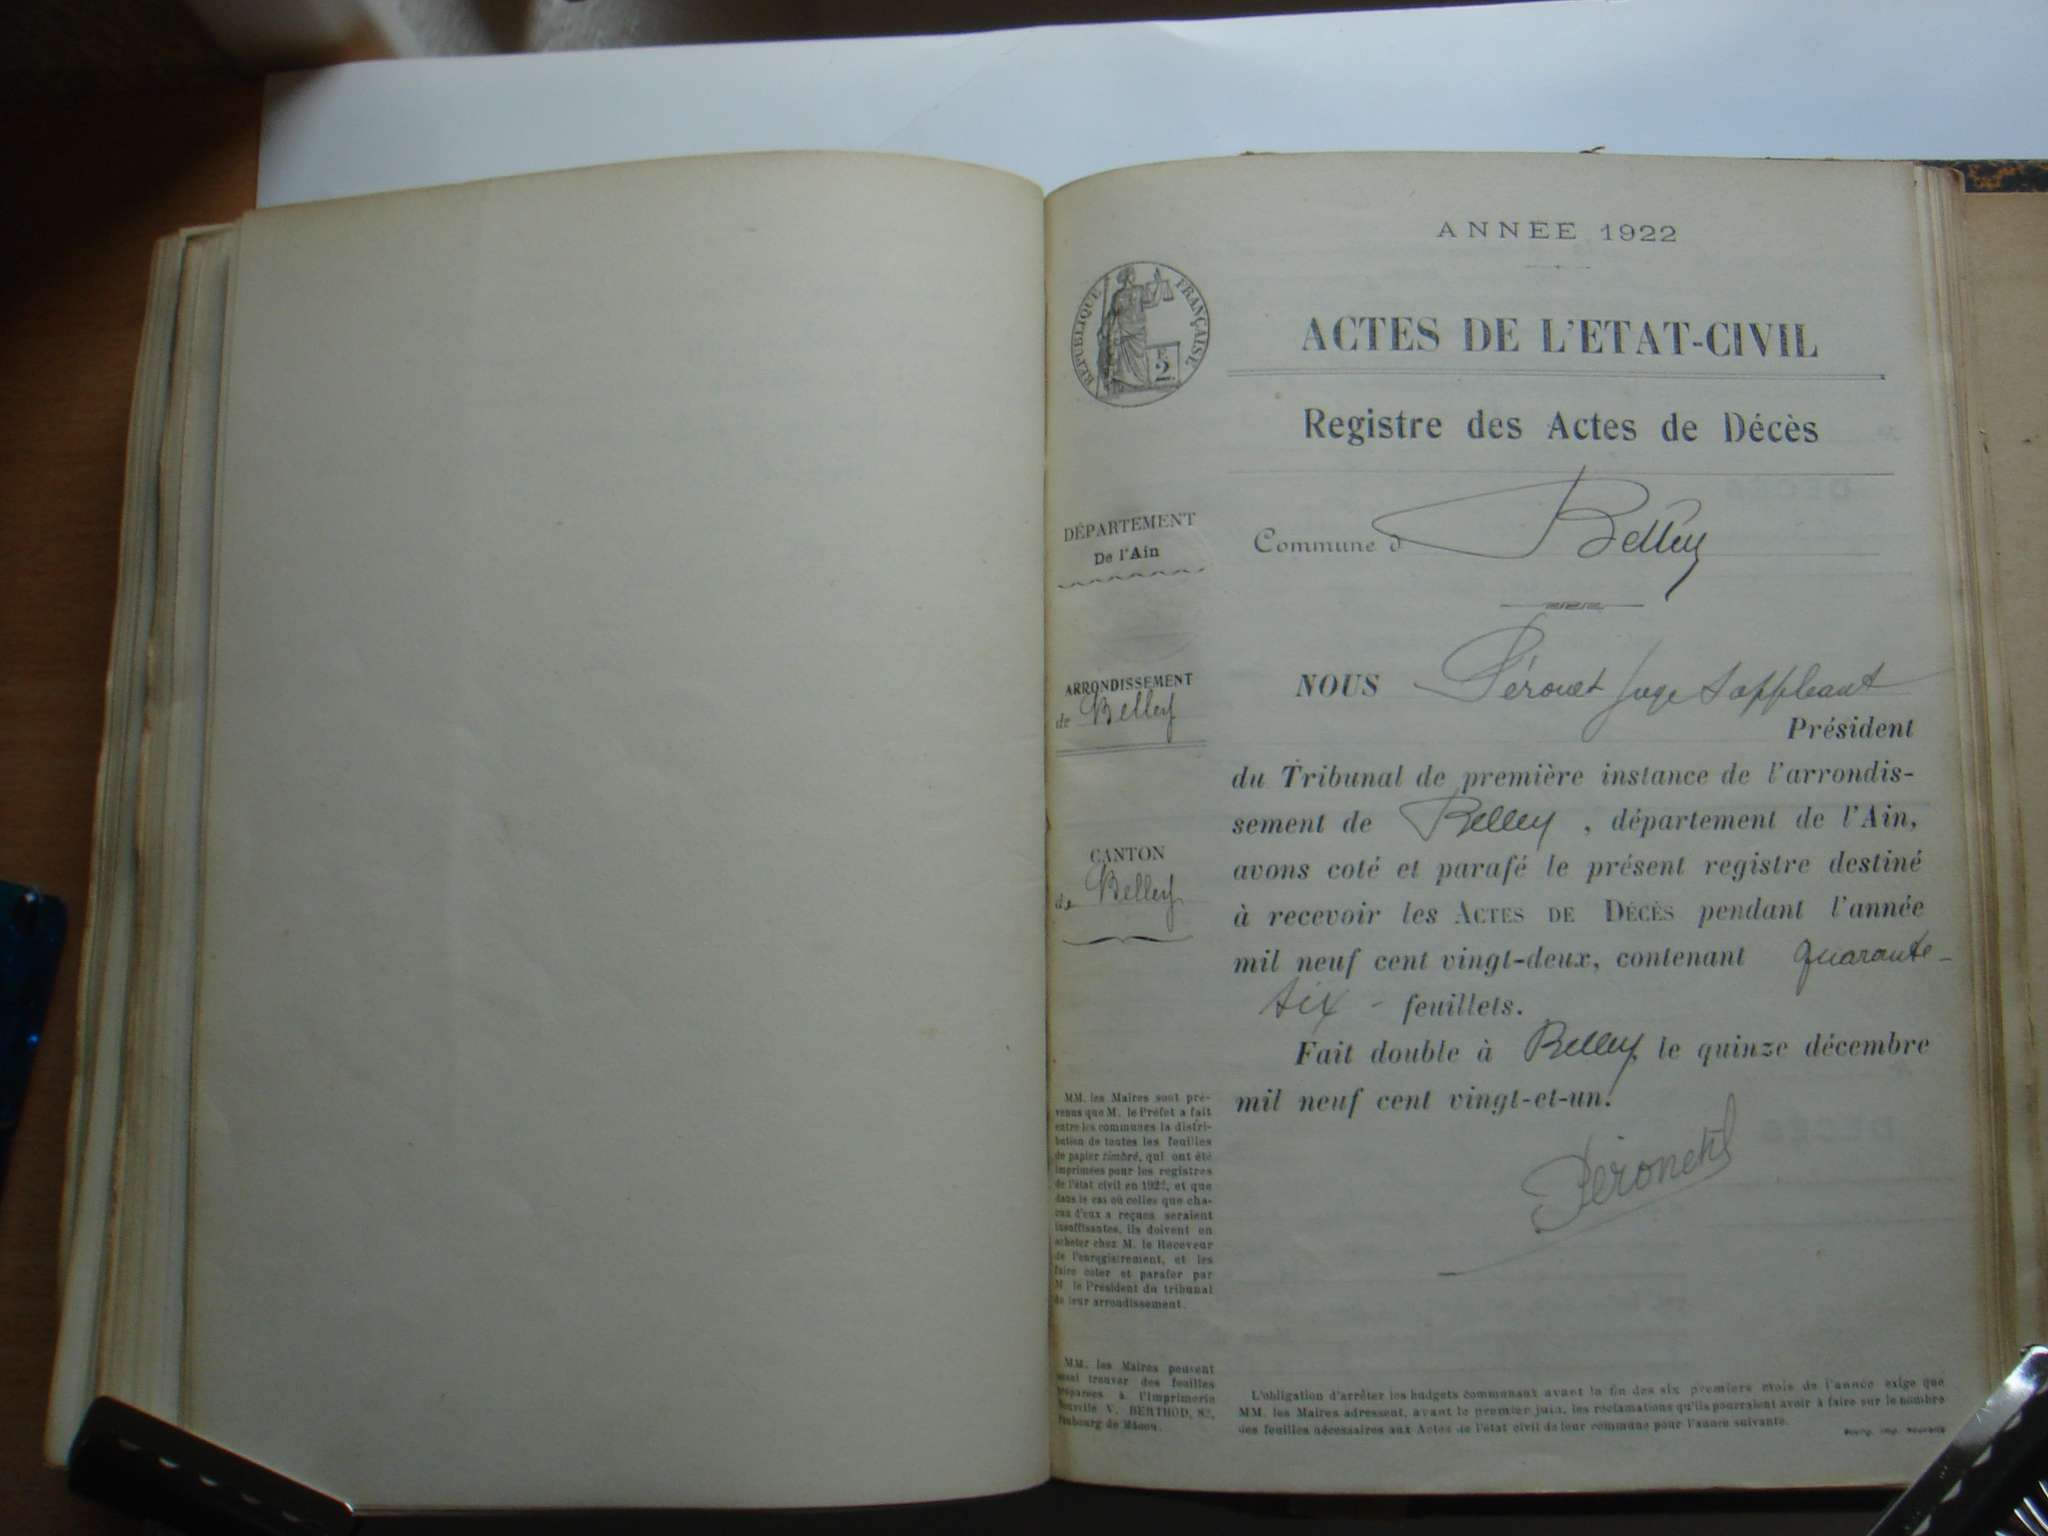 ANNÉE 1922
RÉPUBLIQUE FRANÇAISE
2
ACTES DE L'ETAT-CIVIL
Registre des Actes de Décès
DÉPARTEMENT
De l'Ain
Commune d Belley
ARRONDISSEMENT
de Belley
NOUS Péronet Juge Suppléant
Président
du Tribunal de première instance de l'arrondis-
sement de Belley, département de l'Ain,
CANTON
de Belley
avons coté et parafé le présent registre destiné
à recevoir les ACTES DE DÉCÈS pendant l'année
mil neuf cent vingt-deux, contenant quarante-
six - feuillets.
Fait double à Belley, le quinze décembre
mil neuf cent vingt-et-un.
Péronet
MM. les Maires sont pré-
venus que M. le Préfet a fait
entre les communes la distri-
bution de toutes les feuilles
de papier timbré, qui ont été
imprimées pour les registres
de l'état civil en 1922, et que
dans le cas où celles que cha-
cun d'eux a reçues seraient
insuffisantes, ils doivent en
acheter chez M. le Receveur
de l'enregistrement, et les
faire coter et parafer par
M. le Président du tribunal
de leur arrondissement.
MM. les Maires peuvent
aussi trouver des feuilles
préparées à l'Imprimerie
Nouvelle V. BERTHOD,
Faubourg de Mâcon.
L'obligation d'arrêter les budgets communaux avant la fin des six premiers mois de l'année exige que
MM. les Maires adressent, avant le premier juin, les réclamations qu'ils pourraient avoir à faire sur le nombre
des feuilles nécessaires aux Actes de l'état civil de leur commune pour l'année suivante.
Bourg, Imp. Nouvelle